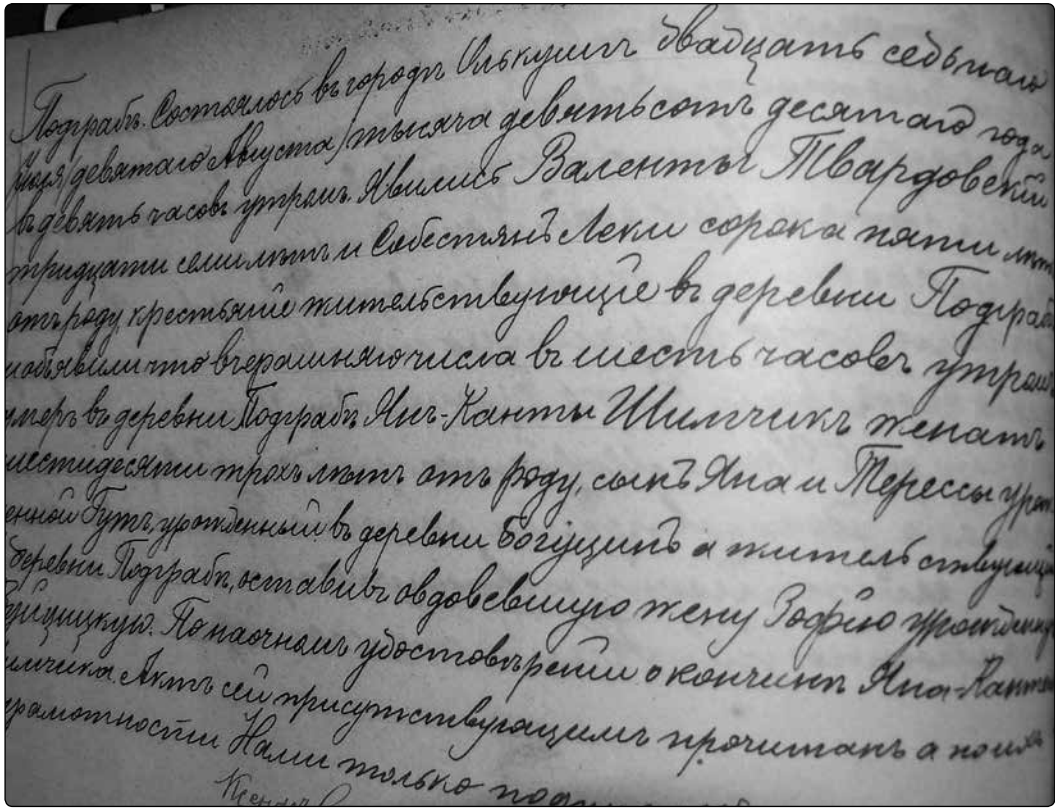 Подграбъ. Состоялось въ городѣ Олькушѣ двадцать седьмаго
Іюля/девятаго Августа/тысяча девятьсотъ десятаго года
въ девять часовъ утромъ. Явились Валентый Твардовскій
тридцати семи лѣтъ и Себестьянъ Леки сорока пяти лѣт
отъ роду, крестьяне жительствующіе въ деревни Подграб
и объявили что вчерашняго числа въ шесть часовъ утромъ
умеръ въ деревни Подграбѣ Янъ-Канты Шимчикъ женатъ
шестидесяти трохъ лѣтъ отъ роду, сынъ Яна и Терессы урож
енной Гутъ, урожденный въ деревни Богуцинъ а жительствующій
деревни Подграбѣ, оставивъ овдовевшую жену Зофію урожденну
По наочномъ удостовѣреніи о кончинѣ Яна-Канте
имчика. Актъ сей присутствующимъ прочитанъ а по
грамотности Нами только под
Ксендзъ